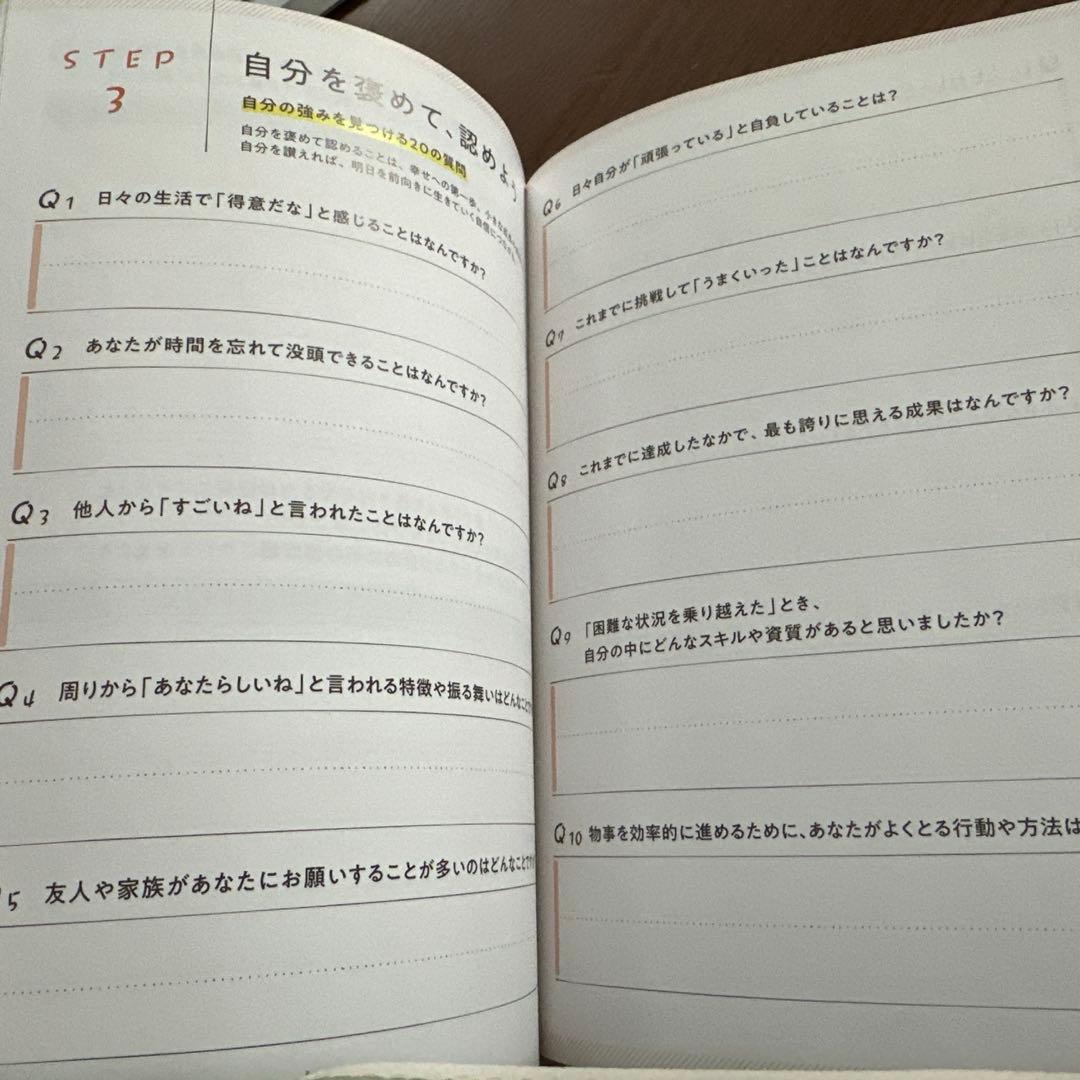 STEP
3
自分を褒めて、認めよう
自分の強みを見つける20の質問
自分を褒めて認めることは、幸せへの第一歩。小さな
自分を讃えれば、明日を前向きに生きていく自信に
Q1 日々の生活で「得意だな」と感じることはなんですか?
Q2 あなたが時間を忘れて没頭できることはなんですか?
Q3 他人から「すごいね」と言われたことはなんですか?
Q4 周りから「あなたらしいね」と言われる特徴や振る舞いはどんなこと
5 友人や家族があなたにお願いすることが多いのはどんなことです
Q6 日々自分が「頑張っている」と自負していることは?
Q7 これまでに挑戦して「うまくいった」ことはなんですか?
Q8 これまでに達成したなかで、最も誇りに思える成果はなんですか?
Q9 「困難な状況を乗り越えた」とき、
自分の中にどんなスキルや資質があると思いましたか?
Q10 物事を効率的に進めるために、あなたがよくとる行動や方法は